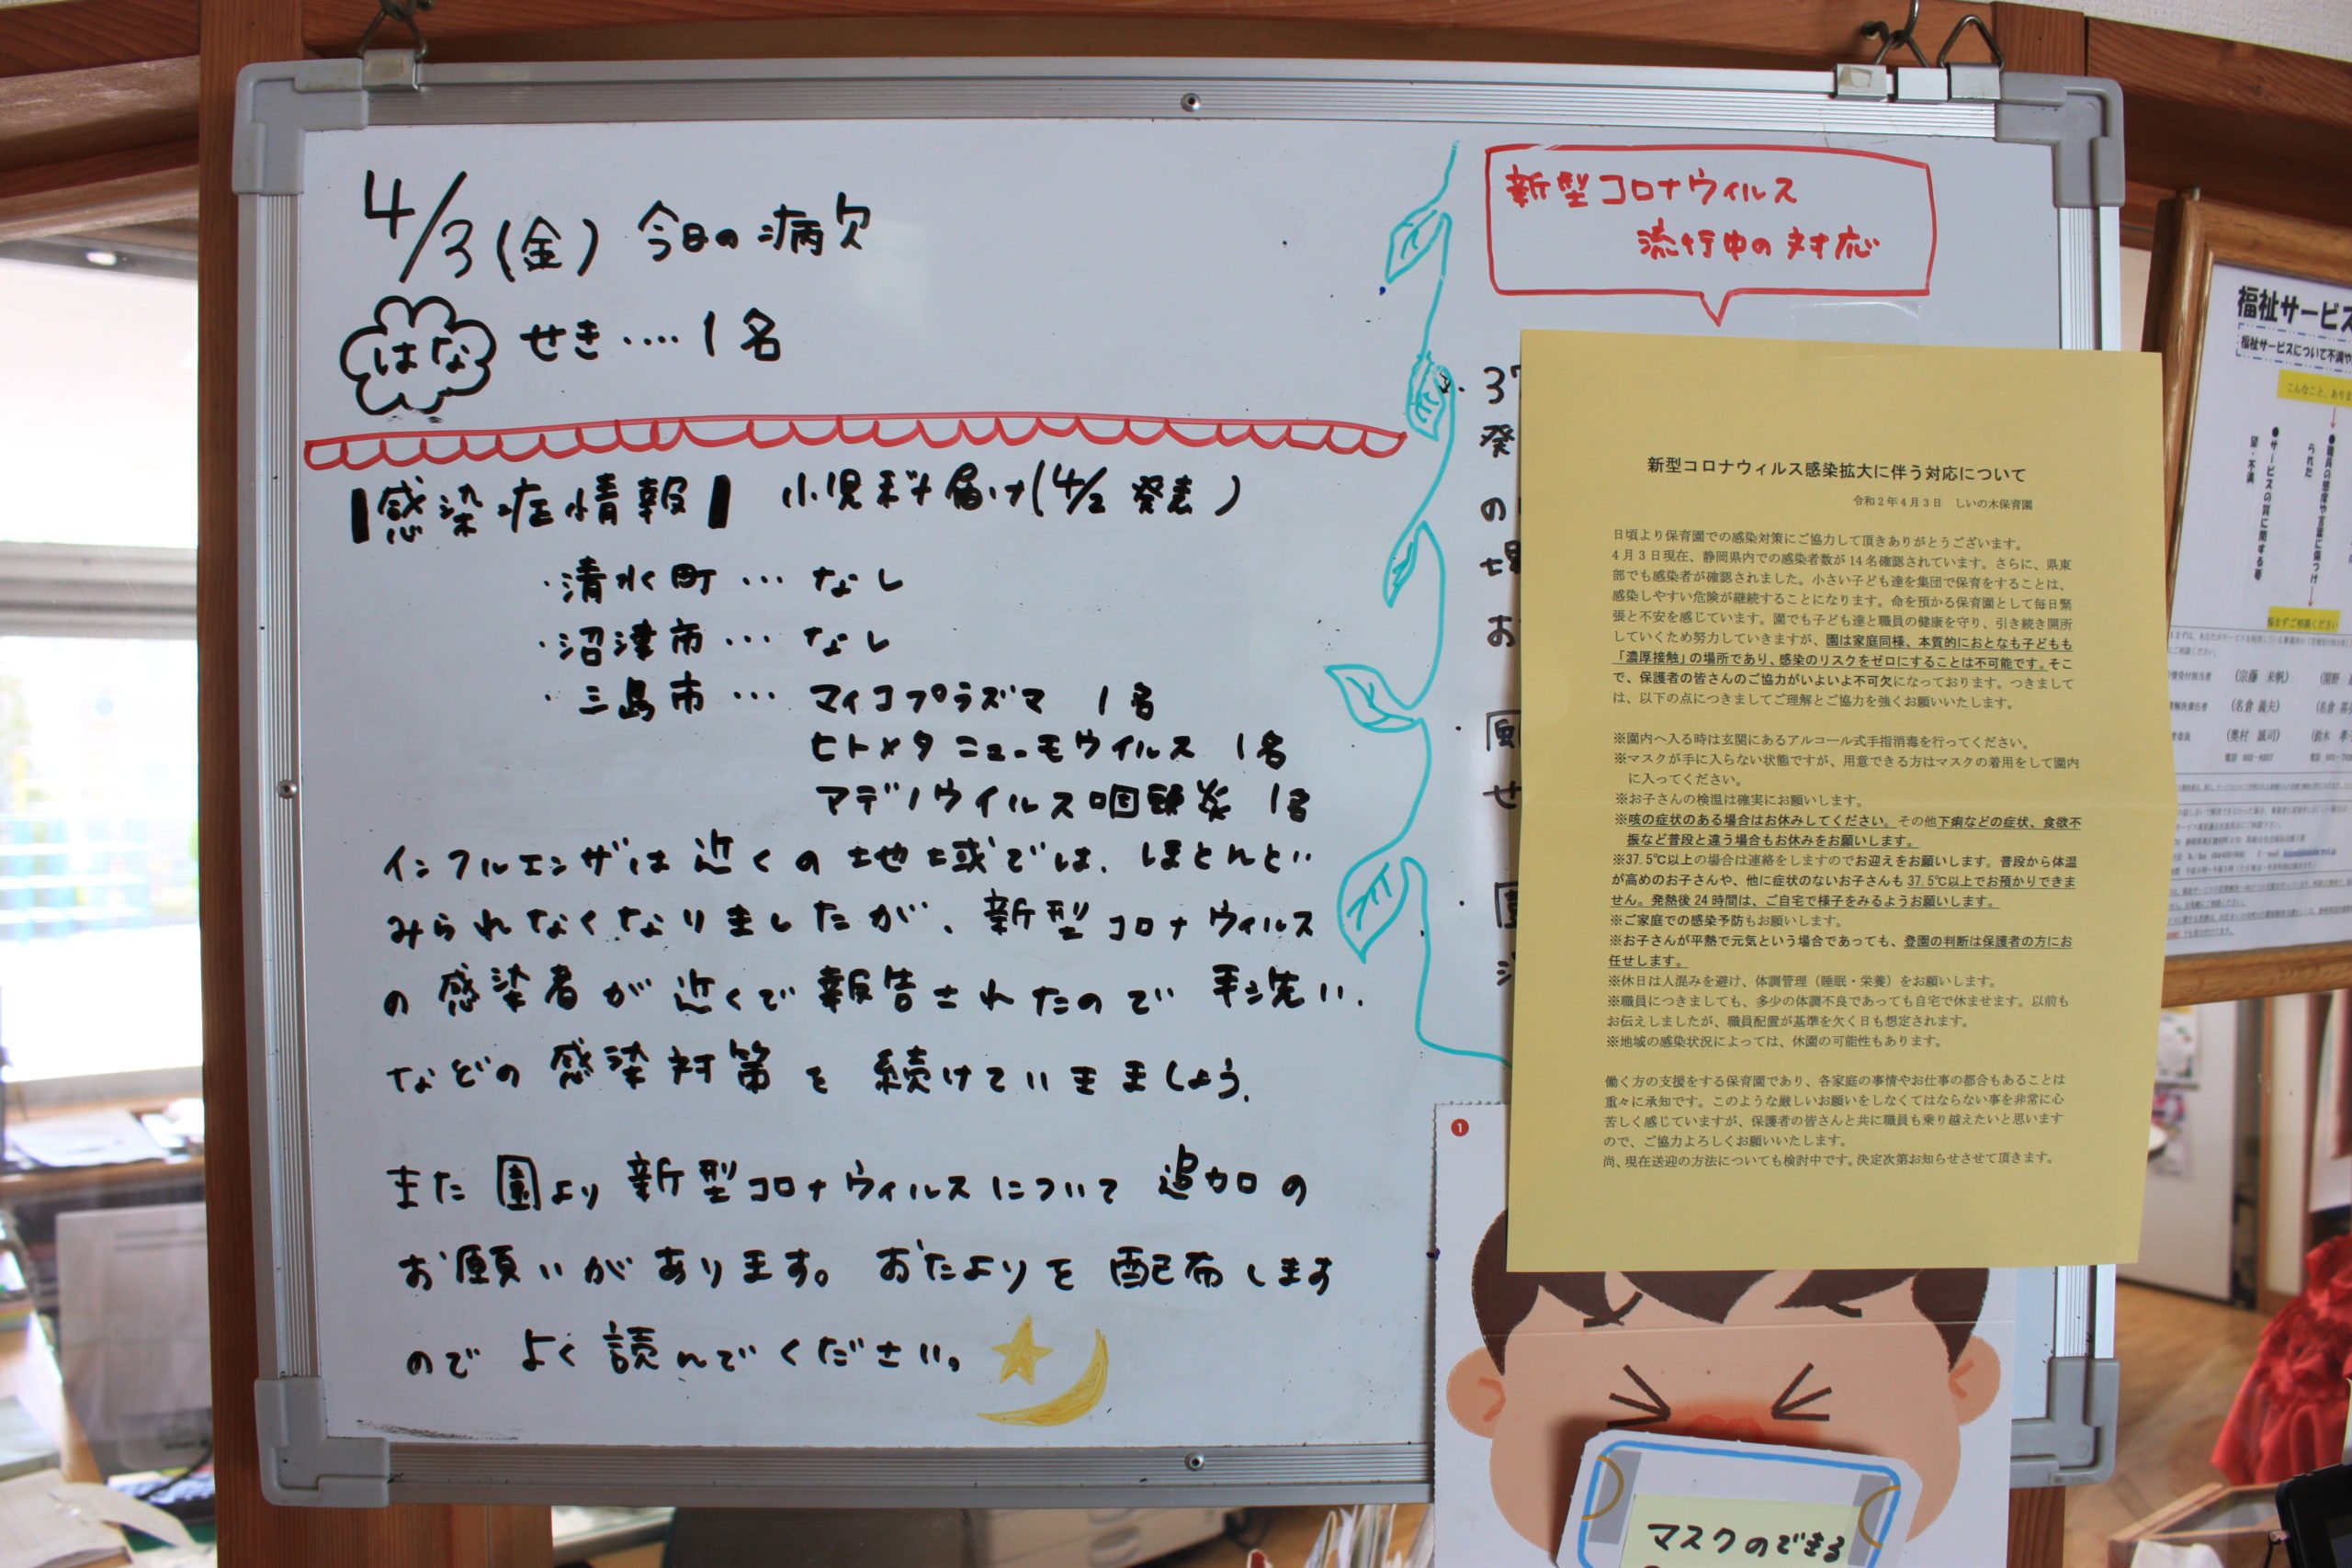 4/3(金) 今日の病欠
はな せき‥‥1名
【感染症情報】 小児科届け(4/2 発表)
・清水町 … なし
・沼津市 … なし
・三島市 … マイコプラズマ 1名
ヒトメタニューモウイルス 1名
アデノウイルス咽頭炎 1名
インフルエンザは近くの地域では、ほとんど
みられなくなりましたが、新型コロナウィルス
の感染者が近くで報告されたので 手洗い、
などの感染対策を続けていきましょう。
また園より新型コロナウィルスについて追加の
お願いがあります。おたよりを配布します
のでよく読んでください。
新型コロナウィルス
流行中の対応
新型コロナウィルス感染拡大に伴う対応について
令和2年4月3日 しいの木保育園
日頃より保育園での感染対策にご協力して頂きありがとうございます。
4月3日現在、静岡県内での感染者数が14名確認されています。さらに、県東
部でも感染者が確認されました。小さい子ども達を集団で保育をすることは、
感染しやすい危険が継続することになります。命を預かる保育園として毎日緊
張と不安を感じています。園でも子ども達と職員の健康を守り、引き続き開所
していくため努力していきますが、園は家庭同様、本質的におとなも子どもも
「濃厚接触」の場所であり、感染のリスクをゼロにすることは不可能です。そこ
で、保護者の皆さんのご協力がいよいよ不可欠になっております。つきまして
は、以下の点につきましてご理解とご協力を強くお願いいたします。
※園内へ入る時は玄関にあるアルコール式手指消毒を行ってください。
※マスクが手に入らない状態ですが、用意できる方はマスクの着用をして園内
に入ってください。
※お子さんの検温は確実にお願いします。
※咳の症状のある場合はお休みしてください。その他下痢などの症状、食欲不
振など普段と違う場合もお休みをお願いします。
※37.5℃以上の場合は連絡をしますのでお迎えをお願いします。普段から体温
が高めのお子さんや、他に症状のないお子さんも37.5℃以上でお預かりできま
せん。発熱後24時間は、ご自宅で様子をみるようお願いします。
※ご家庭での感染予防もお願いします。
※お子さんが平熱で元気という場合であっても、登園の判断は保護者の方にお
任せします。
※休日は人混みを避け、体調管理(睡眠・栄養)をお願いします。
※職員につきましても、多少の体調不良であっても自宅で休ませます。以前も
お伝えしましたが、職員配置が基準を欠く日も想定されます。
※地域の感染状況によっては、休園の可能性もあります。
働く方の支援をする保育園であり、各家庭の事情やお仕事の都合もあることは
重々に承知です。このような厳しいお願いをしなくてはならない事を非常に心
苦しく感じていますが、保護者の皆さんと共に職員も乗り越えたいと思います
ので、ご協力よろしくお願いいたします。
尚、現在送迎の方法についても検討中です。決定次第お知らせさせて頂きます。
1
マスクのできる
福祉サービス
福祉サービスについて不満や
こんなこと、あり
●職員の態度や言葉に傷つけ
られた
●サービスの質に関する要
望・不満
悩まずご相談ください
(名倉 義夫)
(奥村 誠司)